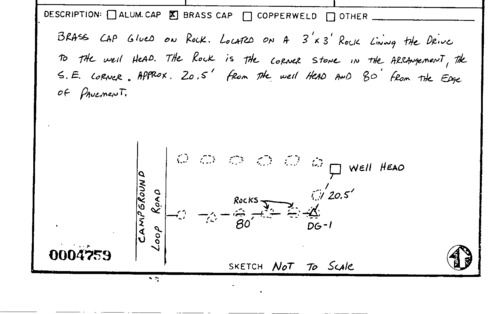 DESCRIPTION: ALUM. CAP BRASS CAP COPPERWELD OTHER
BRASS CAP GLUED ON ROCK. LOCATED ON A 3'x3' ROCK LINING THE DRIVE
TO THE WELL HEAD. THE ROCK IS THE CORNER STONE IN THE ARRANGEMENT, THE
S.E. CORNER. APPROX. 20.5' FROM THE WELL HEAD AND 80' FROM THE EDGE
OF PAVEMENT.
WELL HEAD
CAMPGROUND
LOOP ROAD
ROCKS
20.5'
80'
DG-1
0004759
SKETCH NOT TO SCALE